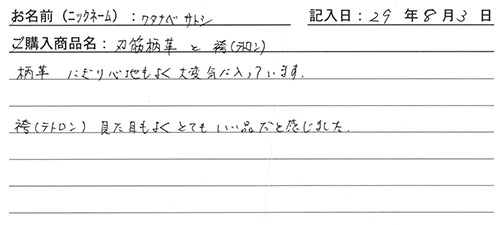 お名前（ニックネーム）：ワタナベサトシ 記入日：29年8月3日
ご購入商品名：刃筋柄革 と 袴（テトロン）
柄革 にぎり心地もよく大変気に入っています.
袴（テトロン） 見た目もよくとてもいい品だと感じました.